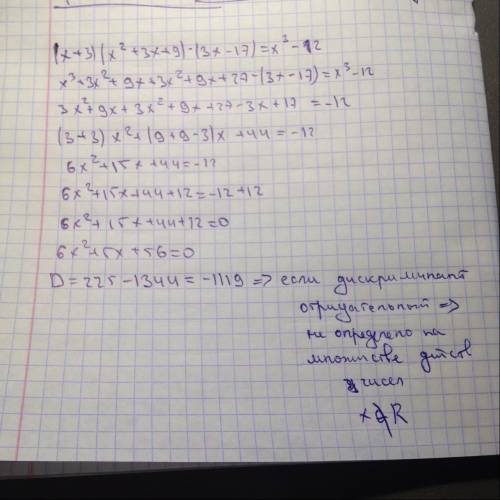 (x+3)(x²+3x+9)-(3x-17)=x³-12
x³+3x²+9x+3x²+9x+27-(3x-17)=x³-12
3x²+9x+3x²+9x+27-3x+17=-12
(3+3)x²+(9+9-3)x+44=-12
6x²+15x+44=-12
6x²+15x+44+12=-12+12
6x²+15x+44+12=0
6x²+15x+56=0
D=225-1344=-1119 => если дискриминант
отрицательный =>
не определено на
множистве действ
чисел
x∉R